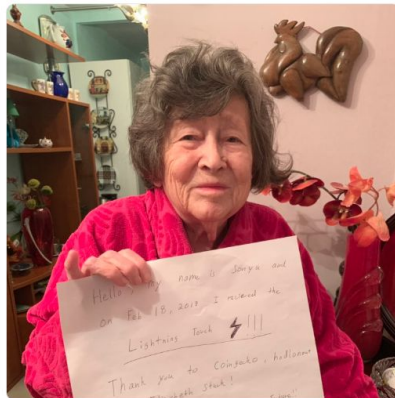 Hello, my name is Sonya and
on Feb 18, 2019 I received the
Lightning Torch ⚡!!!
Thank you to Coingako, hodlonaut
Elizabeth Stark!